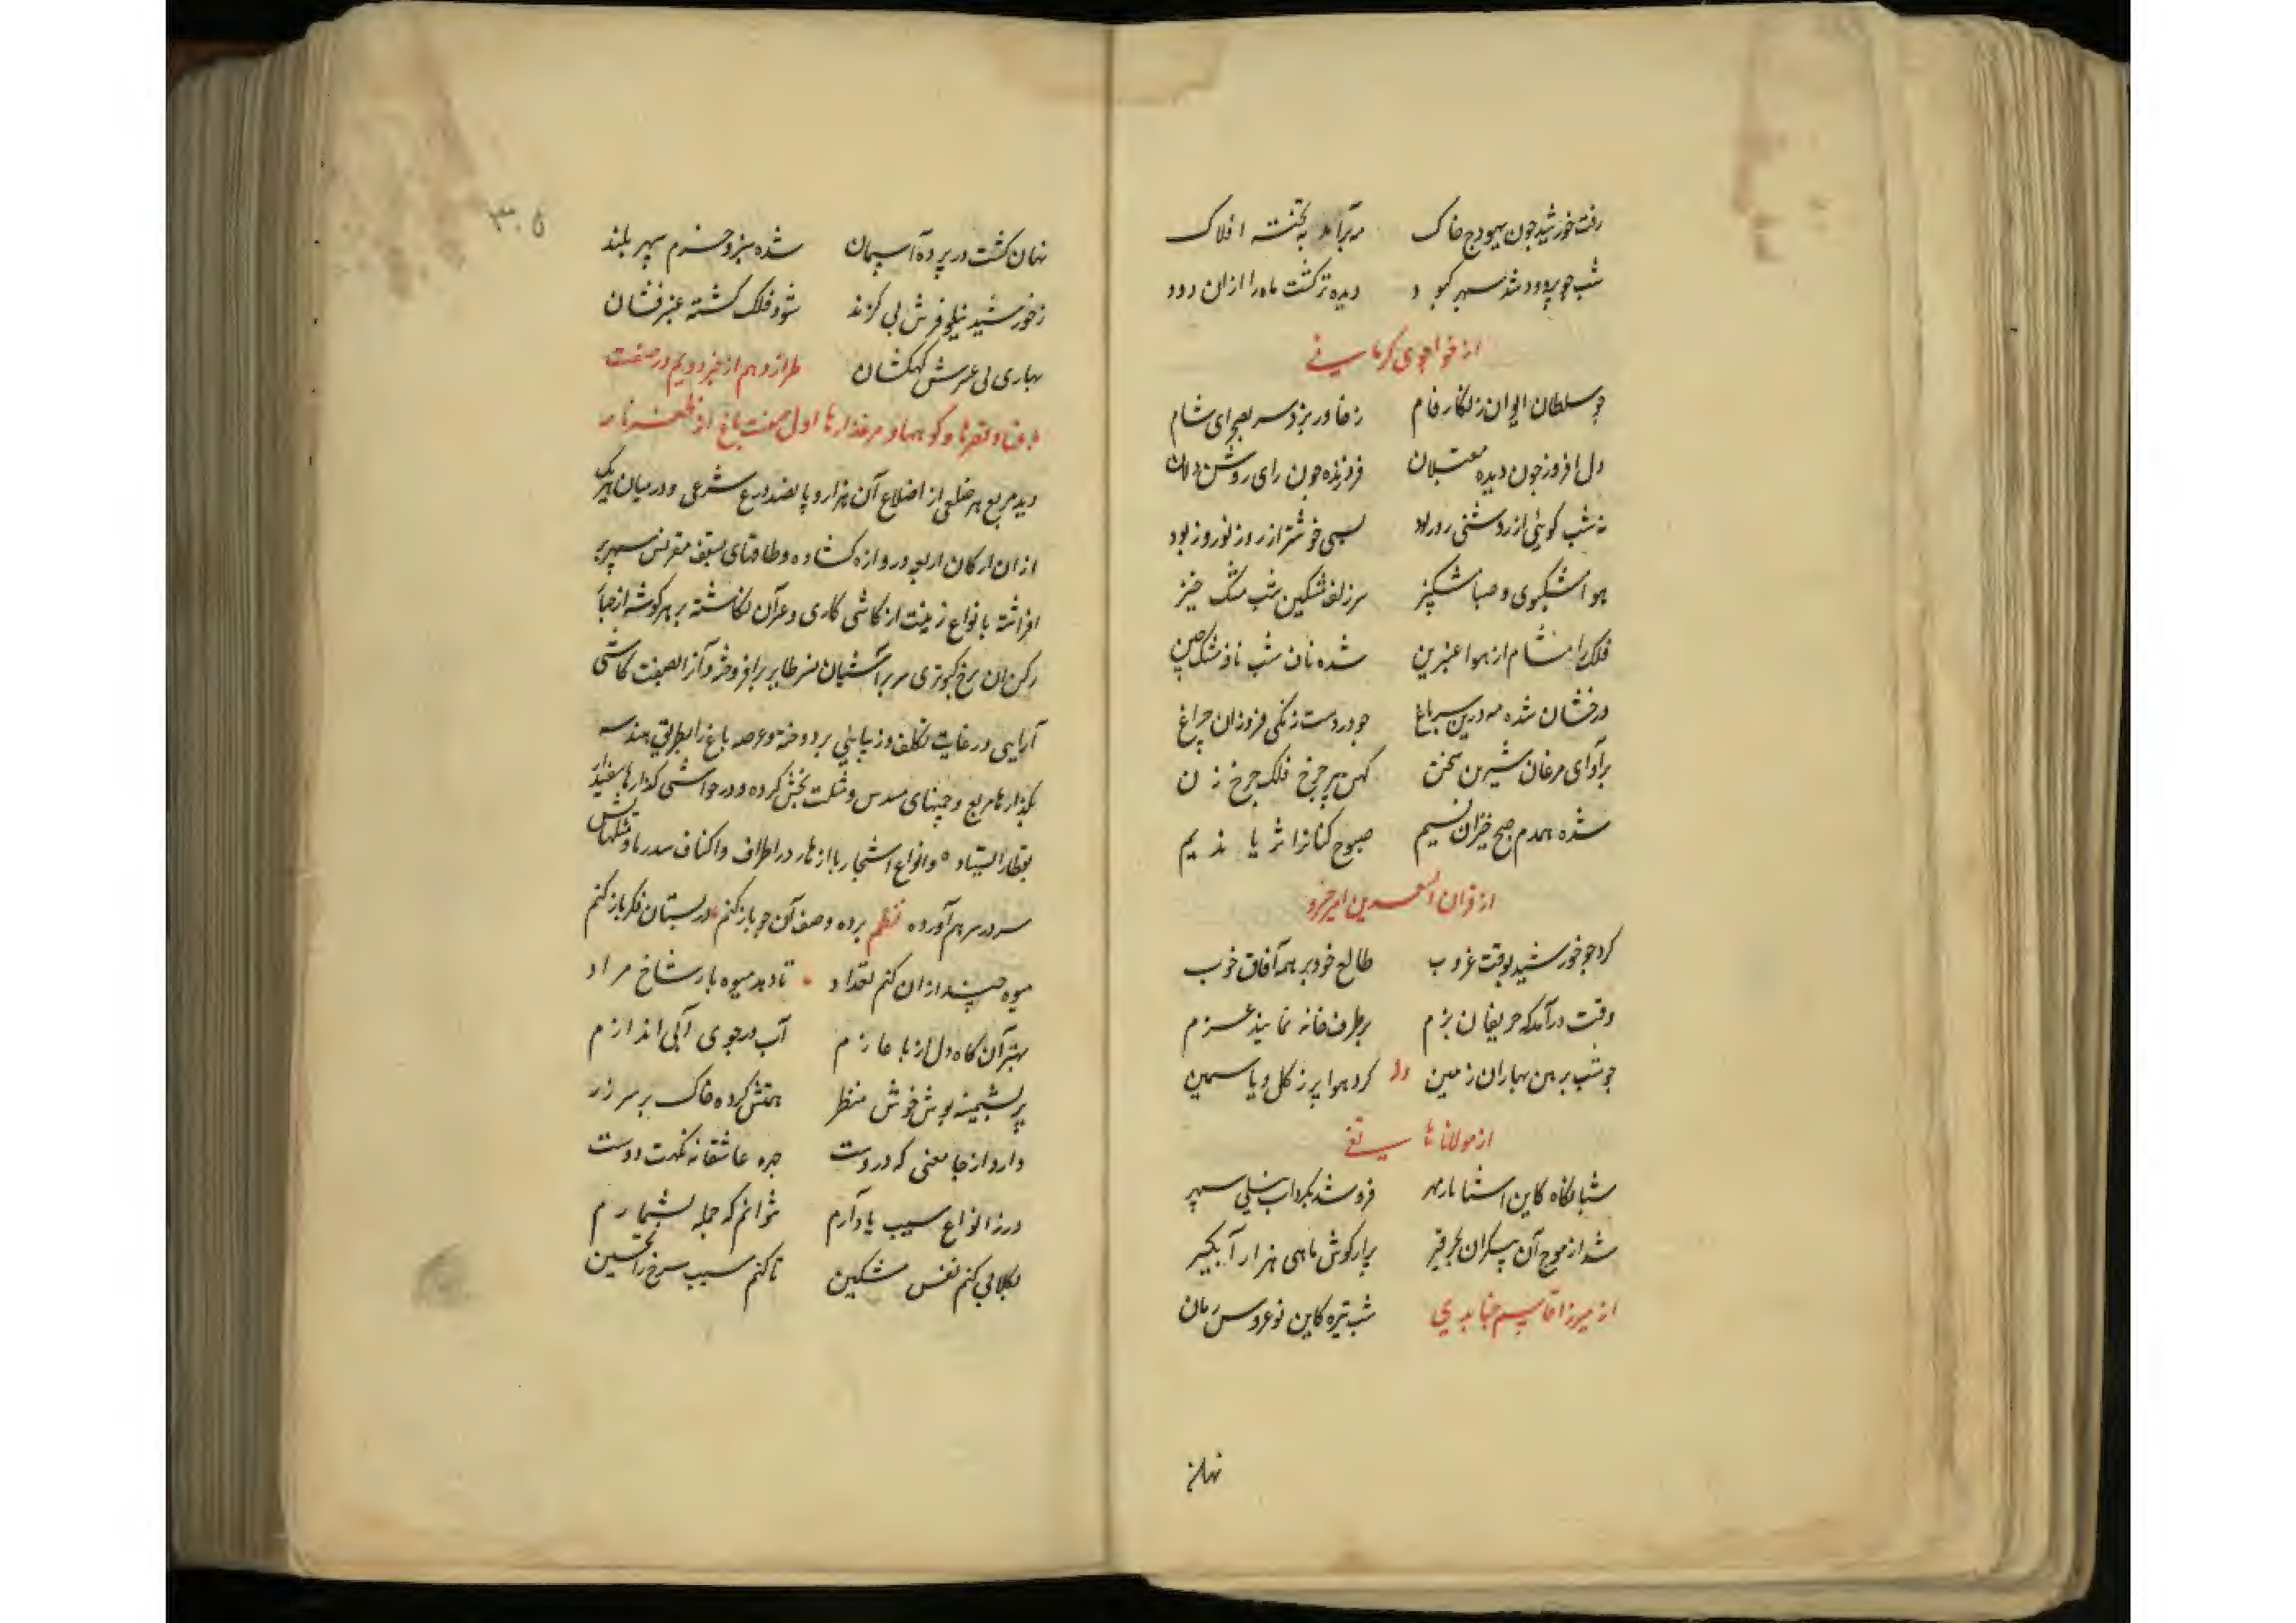 رفت خورشید چون بهودج خاک مه برآمد به تخت افلاک
شب چو پر دود شد سپهر کبود دیده تر گشت ماه را ازان دود
از خواجوی کرمانی
چو سلطان ایوان زنگار فام ز خاور بزد سر بصحرای شام
دل افروز چون دیده مقبلان فروزنده چون رای روشن دلان
نه شب گوئی از روشنی روز بود بسی خوشتر از روز نوروز بود
هوا مشکبوی و صبا مشکبیز سر زلف مشکین شب مشک خیز
فلک را مشام از هوا عنبرین شده ناف شب نافه مشک چین
درخشان شده مه درین سبز باغ چو در دست زنگی فروزان چراغ
بر آوای مرغان شیرین سخن کهن پیر چرخ فلک چرخ زن
شده همدم صبح خیزان نسیم صبوحی کنانرا ثریا ندیم
از قران السعدین امیر خسرو
کرد چو خورشید بوقت غروب طالع خود بر همه آفاق خوب
وقت درآمد که حریفان بزم بر طرف خانه نمایند عزم
چو شب برهن بهاران زمین وله کرد هوا پر ز گل و یاسمین
از مولانا هاتفی
شبانگاه کاین آشنا باز مهر فرو شد بگرداب نیلی سپهر
شد از موج آن بیکران بحر قیر پر از گوش ماهی هزار آبگیر
از میرزا قاسم جنابدی شب تیره کاین نوعروس زمان
نهان
۳۰۵
نهان گشت در پرده آسمان شده سبز و خرم سپهر بلند
ز خورشید نیلوفرش بی گزند شود فلک گشته عنبر فشان
بهاری بی عرش کهکشان طراز دهم از خبر دویم در صفت
باغها و قصرها و کوهها و مرغزارها اول صفت باغ از ظفرنامه
دید مربع هر ضلعی از اضلاع آن هزار و پانصد درع شرعی و در میان هر یک
از ان ارکان اربعه دروازه گشاده و طاقهای بسقف مقرنس سپهر بر
افراشته بانواع زینت از کاشی کاری و غرآن نگاشته بر هر گوشه از چهار
رکن ان برج کبوتری سر بر آشیان نسر طایر برافروخته و آنرا بصفت کاشی
آرایی در غایت تکلف و زیبایئی پرداخته و عرصه باغ را بطریق هندسه
بگذارهای مربع و چمنهای مسدس و مثلث بخش کرده و در حواشی گذارها سفیدار
بقطار ایستاده و انواع اشجار با ازهار در اطراف و اکناف مسدسها و مثلثهاش
سر در سر هم آورده نظم پرده وصف آن چو باز کنم در بستان فکر باز کنم
میوه چند ازان کنم تعداد تا دهد میوه بار شاخ مراد
بهتر آن گاه دل از با غازم آب در جوی آبی اندازم
پر پشمینه پوش خوش منظر همتش کرده خاک بر سر زر
دارد از جا معنی که دروست چهره عاشقانه نکهت دوست
ور ز انواع سیب یاد آرم نتوانم که جمله بشمارم
بگلابی کنم نفس مشکین تا کنم سیب سرخ را تحسین